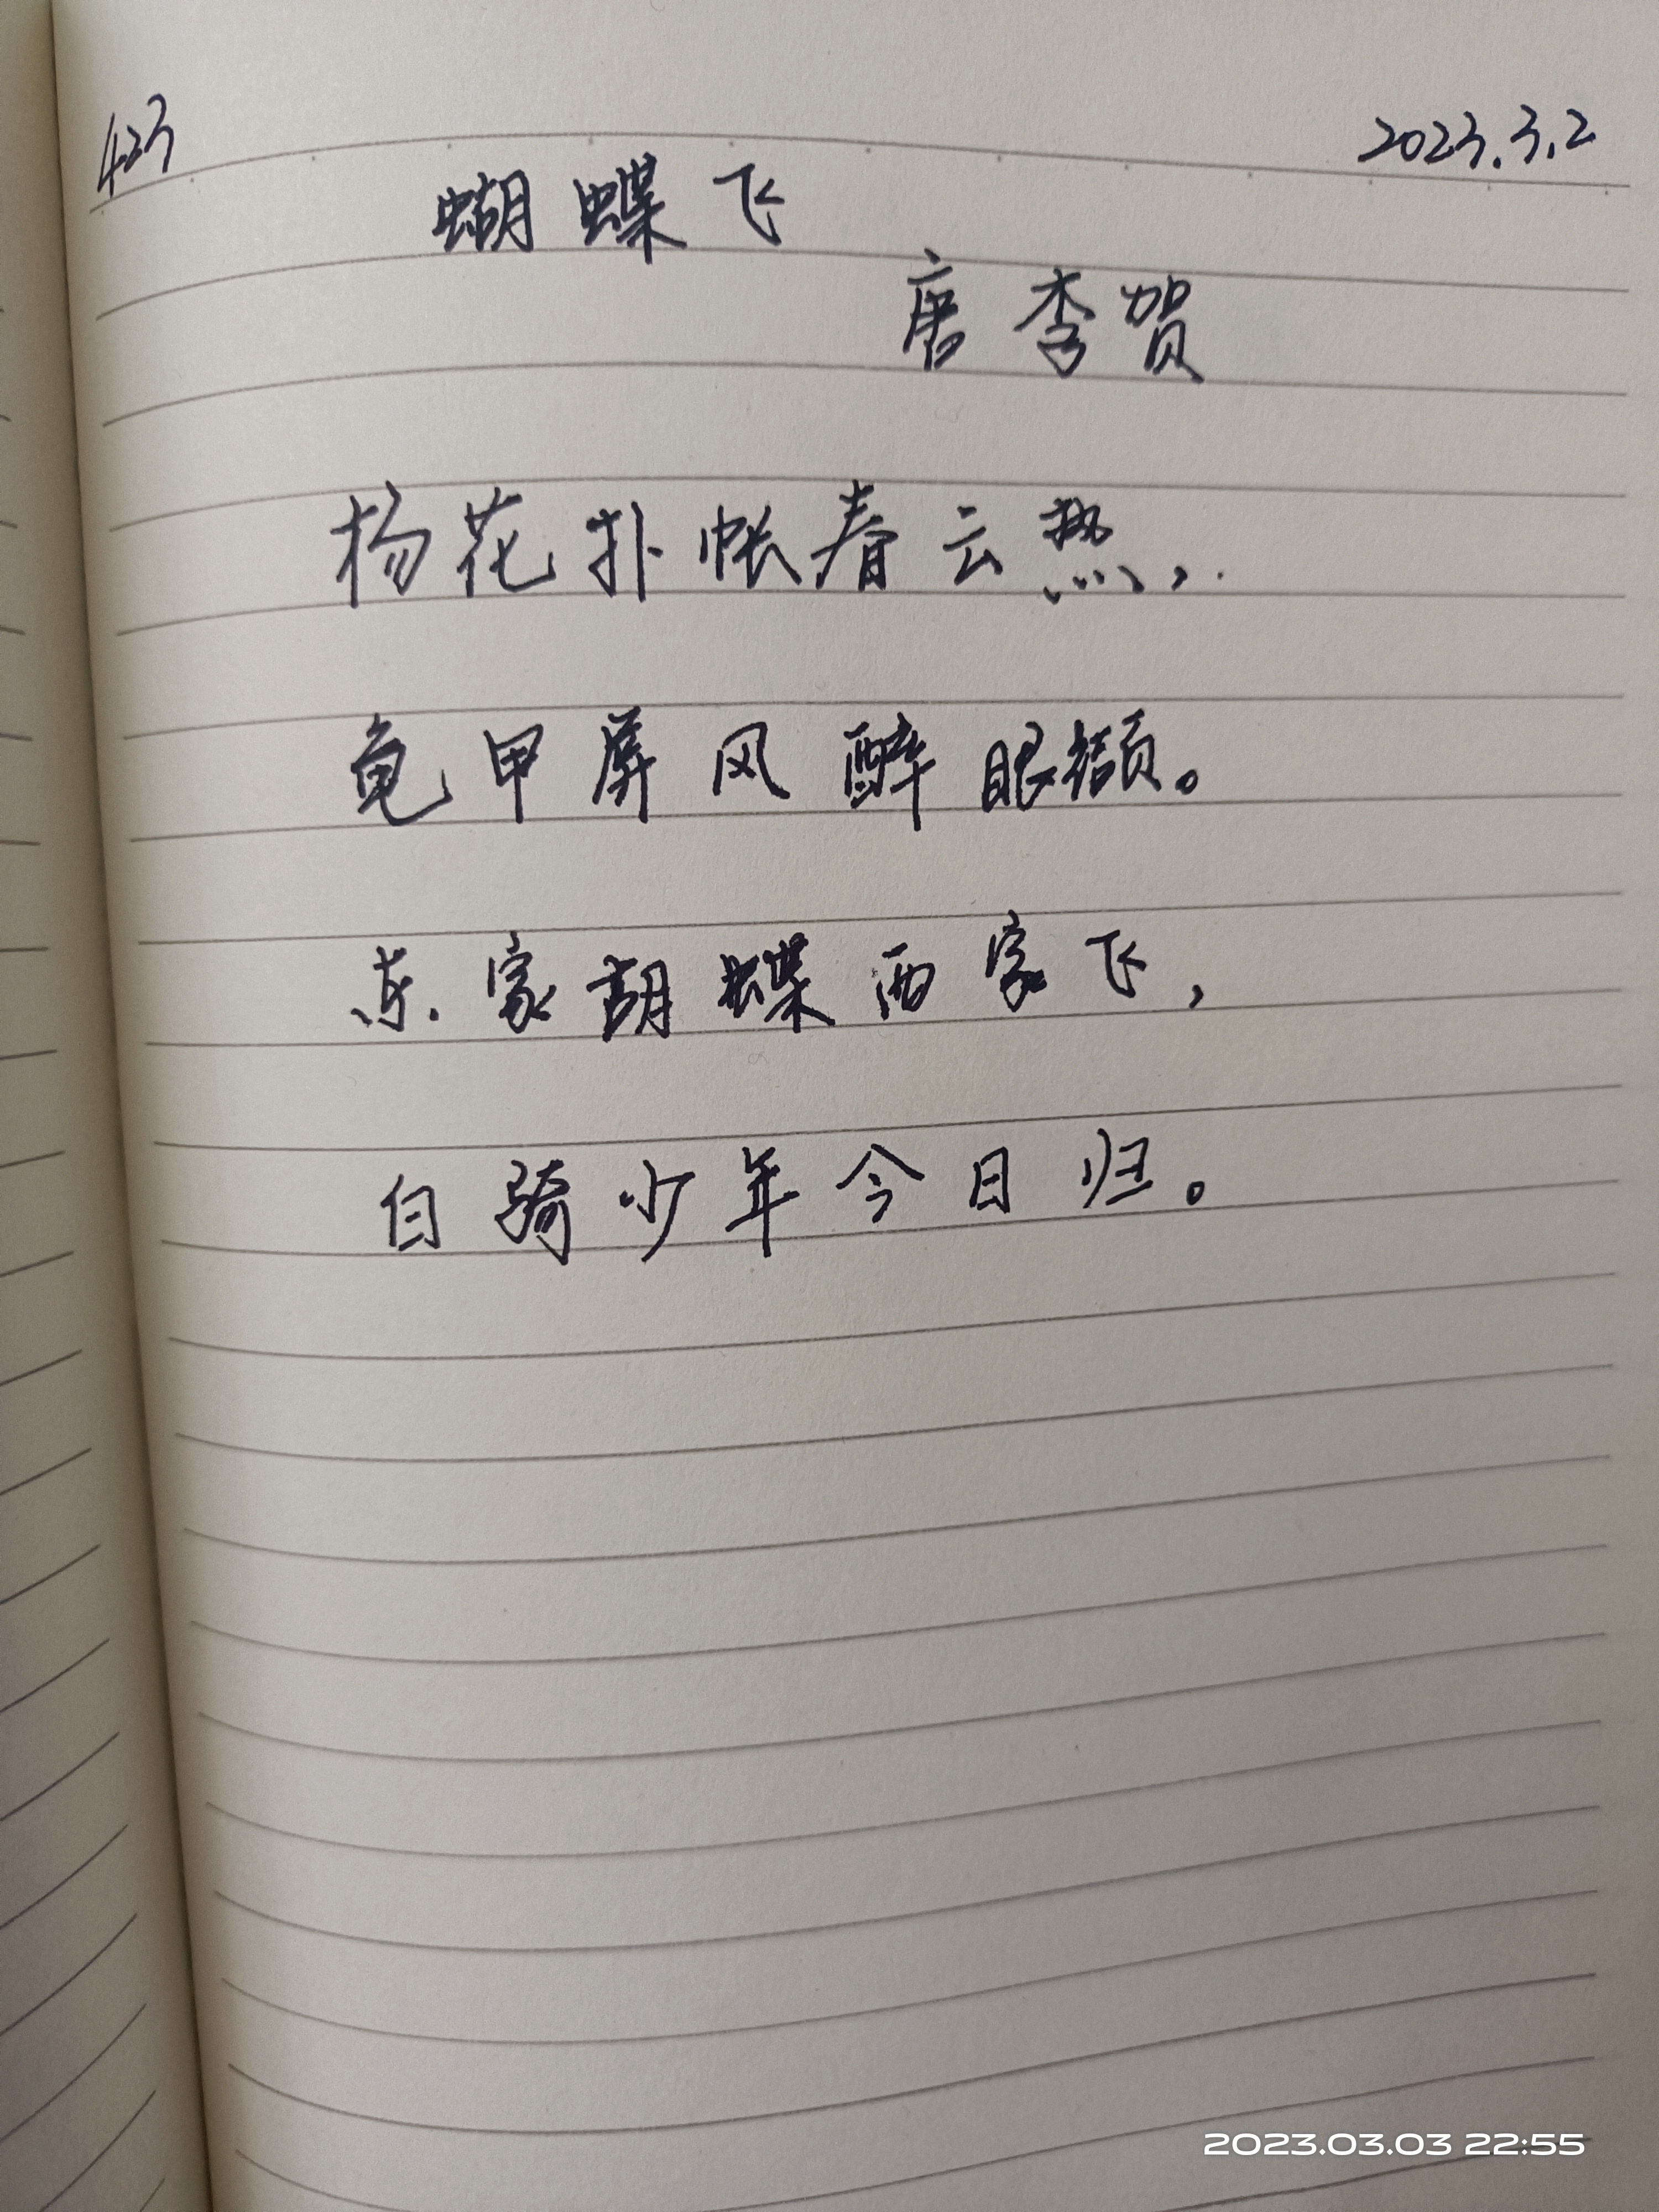 423 2023.3.2
蝴蝶飞
唐 李贺
杨花扑帐春云热，
龟甲屏风醉眼缬。
东家胡蝶西家飞，
白骑少年今日归。
2023.03.03 22:55